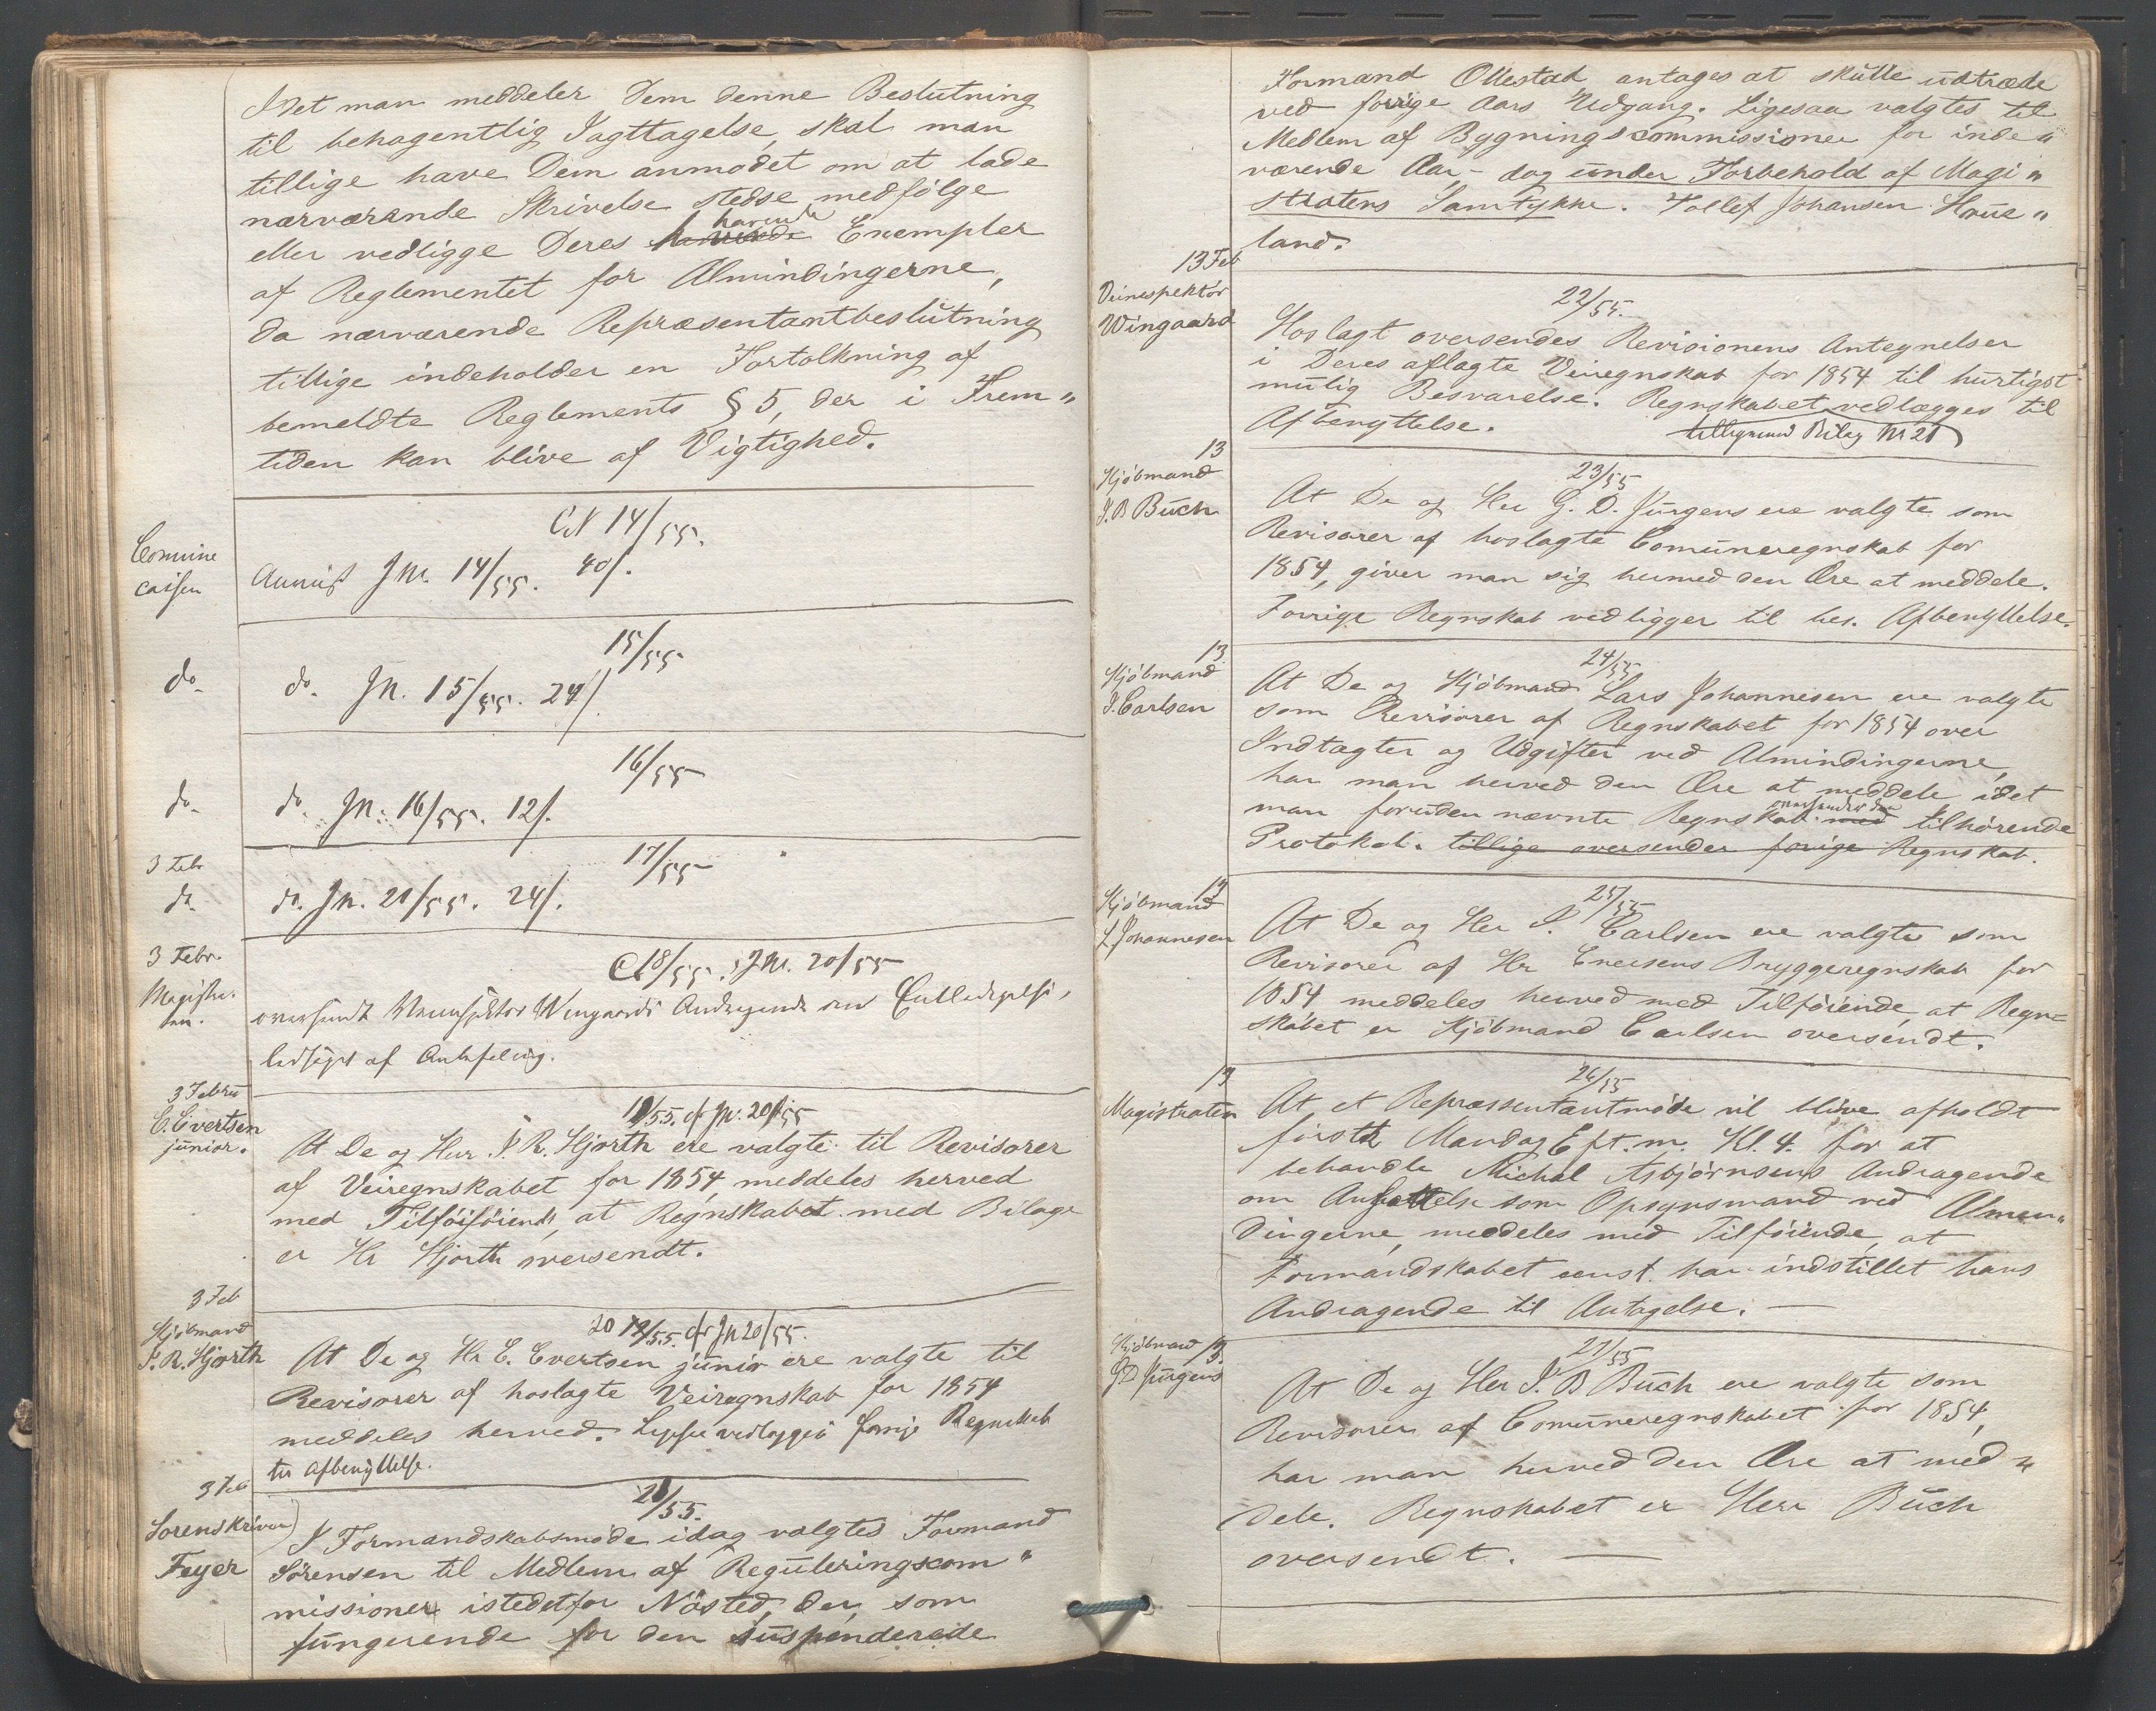 Idet man meddeler Dem denne Beslutning
til behagentlig Iagttagelse, skal man
tillige have Dem anmodet om at lade
nærværende Skrivelse stedse medfølge
eller vedligge Deres havende Exempler
af Reglementet for Almindingerne,
da nærværende Repræsentantbeslutning
tillige indeholder en Fortolkning af
bemeldte Reglements § 5, der i Frem„
tiden kan blive af Vigtighed.
CN 14/55.
Commune
cassen
Anvist JN. 14/55. 40/.
15/55
do
do. JN. 15/55. 24/.
16/55
do
do JN: 16/55. 12/.
17/55
3 Feb
do
do. JN. 21/55. 24/.
3 Febr.
Magistra-
ten.
C18/55. JN. 20/55
oversendt Wingaards Andragende om
ledsaget af Anbefaling.
3 Febru
E. Evertsen
junior.
19/55. cfr JN: 20/55
At De og Herr P. R. Hjorth ere valgte til Revisorer
af Veiregnskabet for 1854, meddeles herved
med Tilføiføiende, at Regnskabet med Bilage
er Hr Hjorth oversendt.
3 Feb
Kjøbmand
P. R. Hjorth
20 19/55. cfr JN 20/55.
At De og Hr E. Evertsen junior ere valgte til
Revisorer af hoslagte Veiregnskab for 1854
meddeles herved. vedlægges forrige Regnskab
til Afbenyttelse.
3 Feb
Sorenskriver
Feyer
21/55.
I Formandskabsmøde idag valgtes Formand
Sørensen til Medlem af Reguleringscom„
missionen istedetfor Nøsted, der, som
fungerende for den suspenderede
Formand Ollestad, antages at skulle udtræde
ved forrige Aars Udgang. Ligesaa valgtes til
Medlem af Bygningscommissionen for inde„
værende Aar - dog under Forbehold af Magi„
stratens Samtykke. Tollef Johansen Haue„
land.
13 Feb
Veiinspektør
Wingaard
22/55.
Hoslagt oversendes Revisionens Antegnelser
i Deres aflagte Veiregnskab for 1854 til hurtigst
mulig Besvarelse. Regnskabet vedlægges til
Afbenyttelse.
tilligemed Bilag No 21
13
Kjøbmand
J. B Buch
23/55
At De og Herr G. D. Jürgens ere valgte som
Revisorer af hoslagte Comuneregnskab for
1854, giver man sig hermed den Ære at meddele.
Forrige Regnskab vedligger til beh. Afbenyttelse.
13
Kjøbmand
J. Carlsen
24/55
At De og Kjøbmand Lars Johannesen ere valgte
som Revisorer af Regnskabet for 1854 over
Indtægter og Udgifter ved Almindingerne,
har man herved den Ære at meddele idet
man foruden nævnte Regnskab med oversender den tilhørende
Protokol. tillige oversender forige Regnskab.
13
Kjøbmand
L Johannesen
25/55
At De og Herr J. Carlsen ere valgte som
Revisorer af Hr Enersens Bryggeregnskab for
1854 meddeles herved med Tilføiende, at Regn=
skabet er Kjøbmand Carlsen oversendt.
13
Magistraten
26/55
At et Repræsentantmøde vil blive afholdt
førstk Mandag Eft.m. Kl. 4. for at
behandle Michal Asbjørnsens Andragende
om Ansættelse som Opsynsmand ved Almen„
dingerne, meddeles med Tilføiende, at
Formandskabet eenst. har indstillet hans
Andragende til Antagelse. —
Kjøbmand 13
G D Jürgens
27/55
At De og Herr J. B Buch ere valgte som
Revisorer af Comuneregnskabet for 1854,
har man herved den Ære at med„
dele. Regnskabet er Herr Buch
oversendt. —